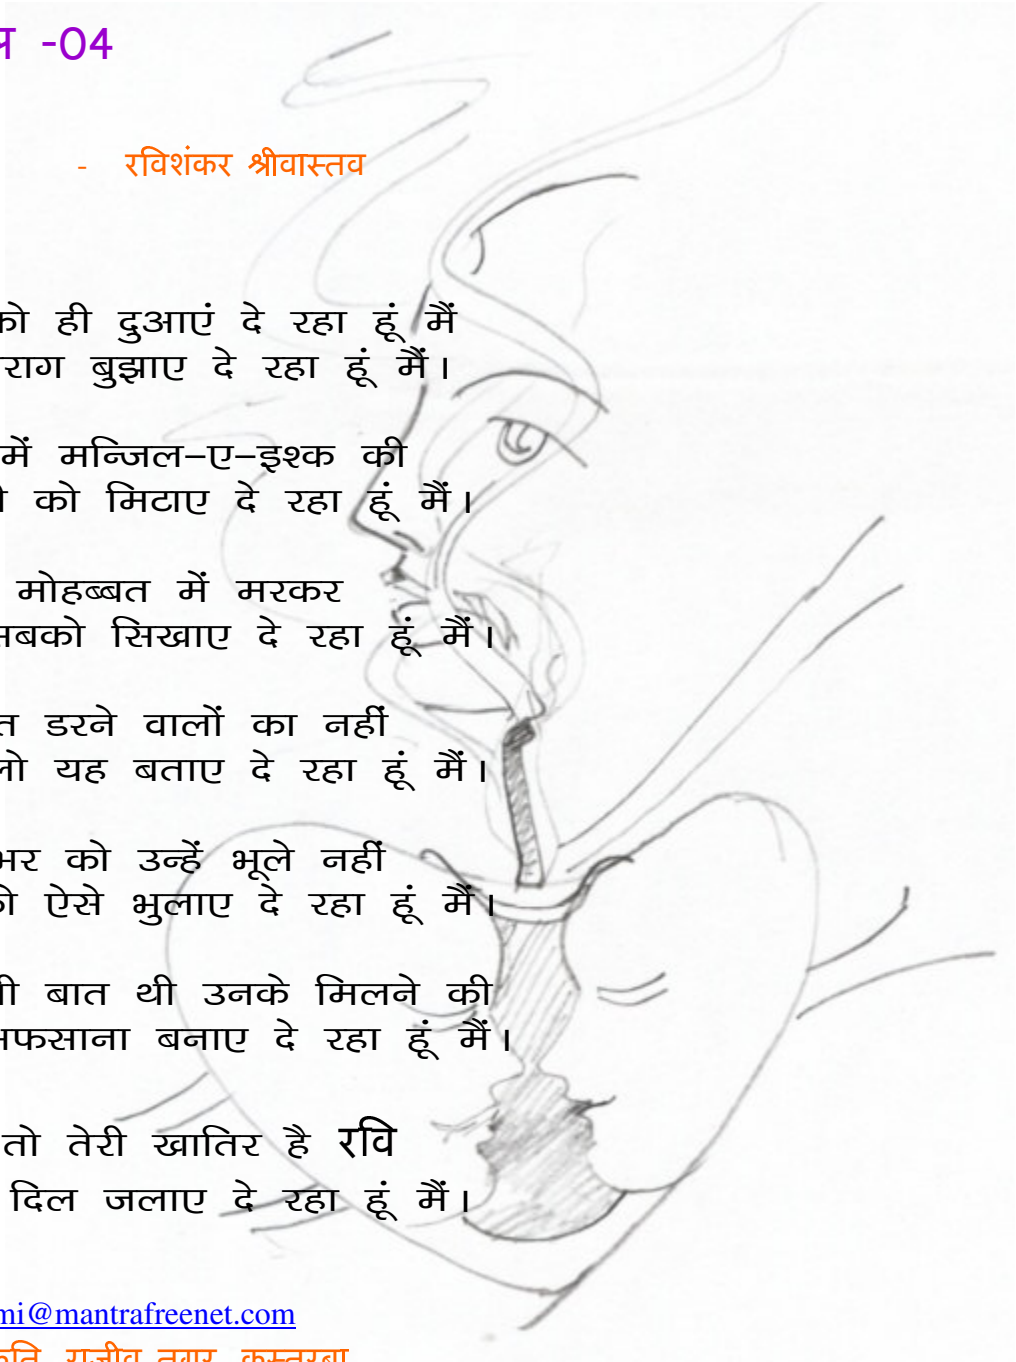 -04
- रविशंकर श्रीवास्तव
को ही दुआएं दे रहा हूं मैं
राग बुझाए दे रहा हूं मैं।
में मन्जिल–ए–इश्क की
को मिटाए दे रहा हूं मैं।
मोहब्बत में मरकर
सबको सिखाए दे रहा हूं मैं।
डरने वालों का नहीं
लो यह बताए दे रहा हूं मैं।
भर को उन्हें भूले नहीं
ऐसे भुलाए दे रहा हूं मैं।
बात थी उनके मिलने की
अफसाना बनाए दे रहा हूं मैं।
तो तेरी खातिर है रवि
दिल जलाए दे रहा हूं मैं।
mi@mantrafreenet.com